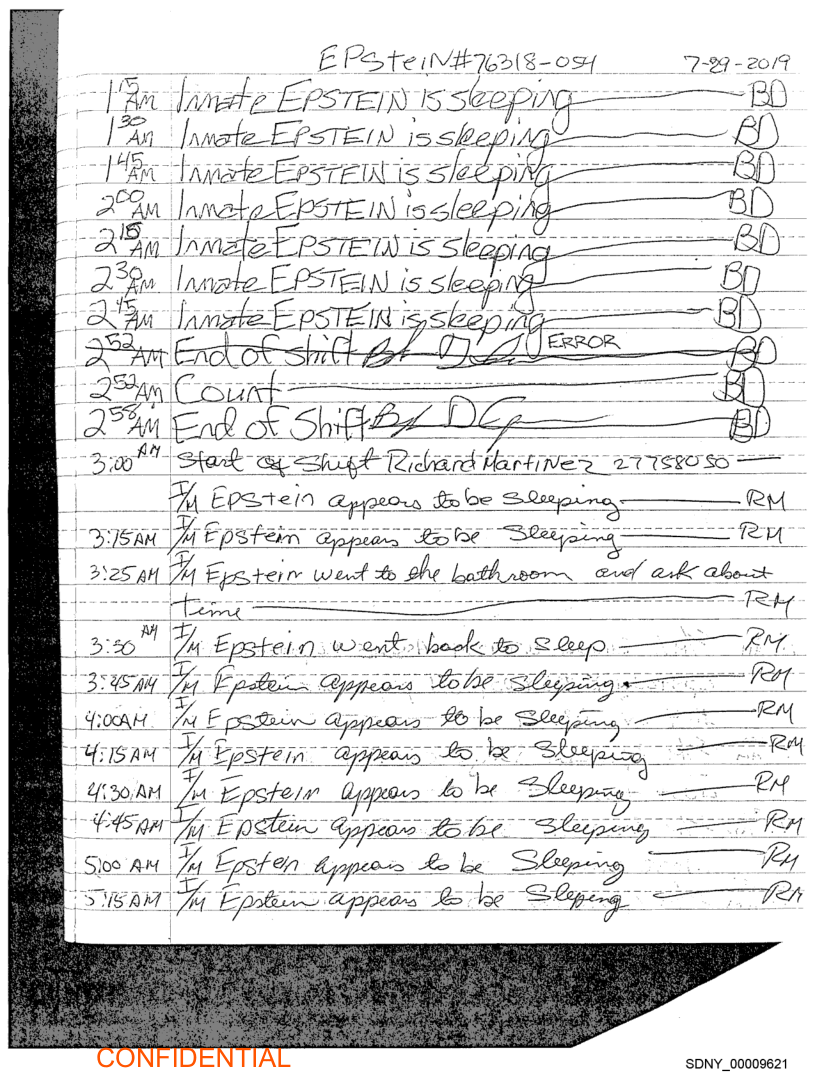 EPSteiN#76318-054 7-29-2019
1 15 AM Inmate EPSTEIN is sleeping BD
1 30 AM Inmate EPSTEIN is sleeping BD
1 45 AM Inmate EPSTEIN is sleeping BD
2 00 AM Inmate EPSTEIN is sleeping BD
2 15 AM Inmate EPSTEIN is sleeping BD
2 30 AM Inmate EPSTEIN is sleeping BD
2 45 AM Inmate EPSTEIN is sleeping BD
2 52 AM End of Shift ERROR BD
2 52 AM Count BD
2 58 AM End of Shift BD
3:00 AM Start of Shift Richard Martinez 27758050
I/M EPStein appears to be Sleeping RM
3:15 AM I/M EpStein appears to be Sleeping RM
3:25 AM I/M Epstein went to the bathroom and ask about
time RM
3:30 AM I/M Epstein went back to sleep RM
3:45 AM I/M Epstein appears to be sleeping. RM
4:00AM I/M Epstein appears to be Sleeping RM
4:15 AM I/M Epstein appears to be Sleeping RM
4:30 AM I/M Epstein appears to be Sleeping RM
4:45 AM I/M Epstein appears to be Sleeping RM
5:00 AM I/M Epsten appears to be Sleeping RM
5:15 AM I/M Epstein appears to be Sleping RM
CONFIDENTIAL
SDNY_00009621